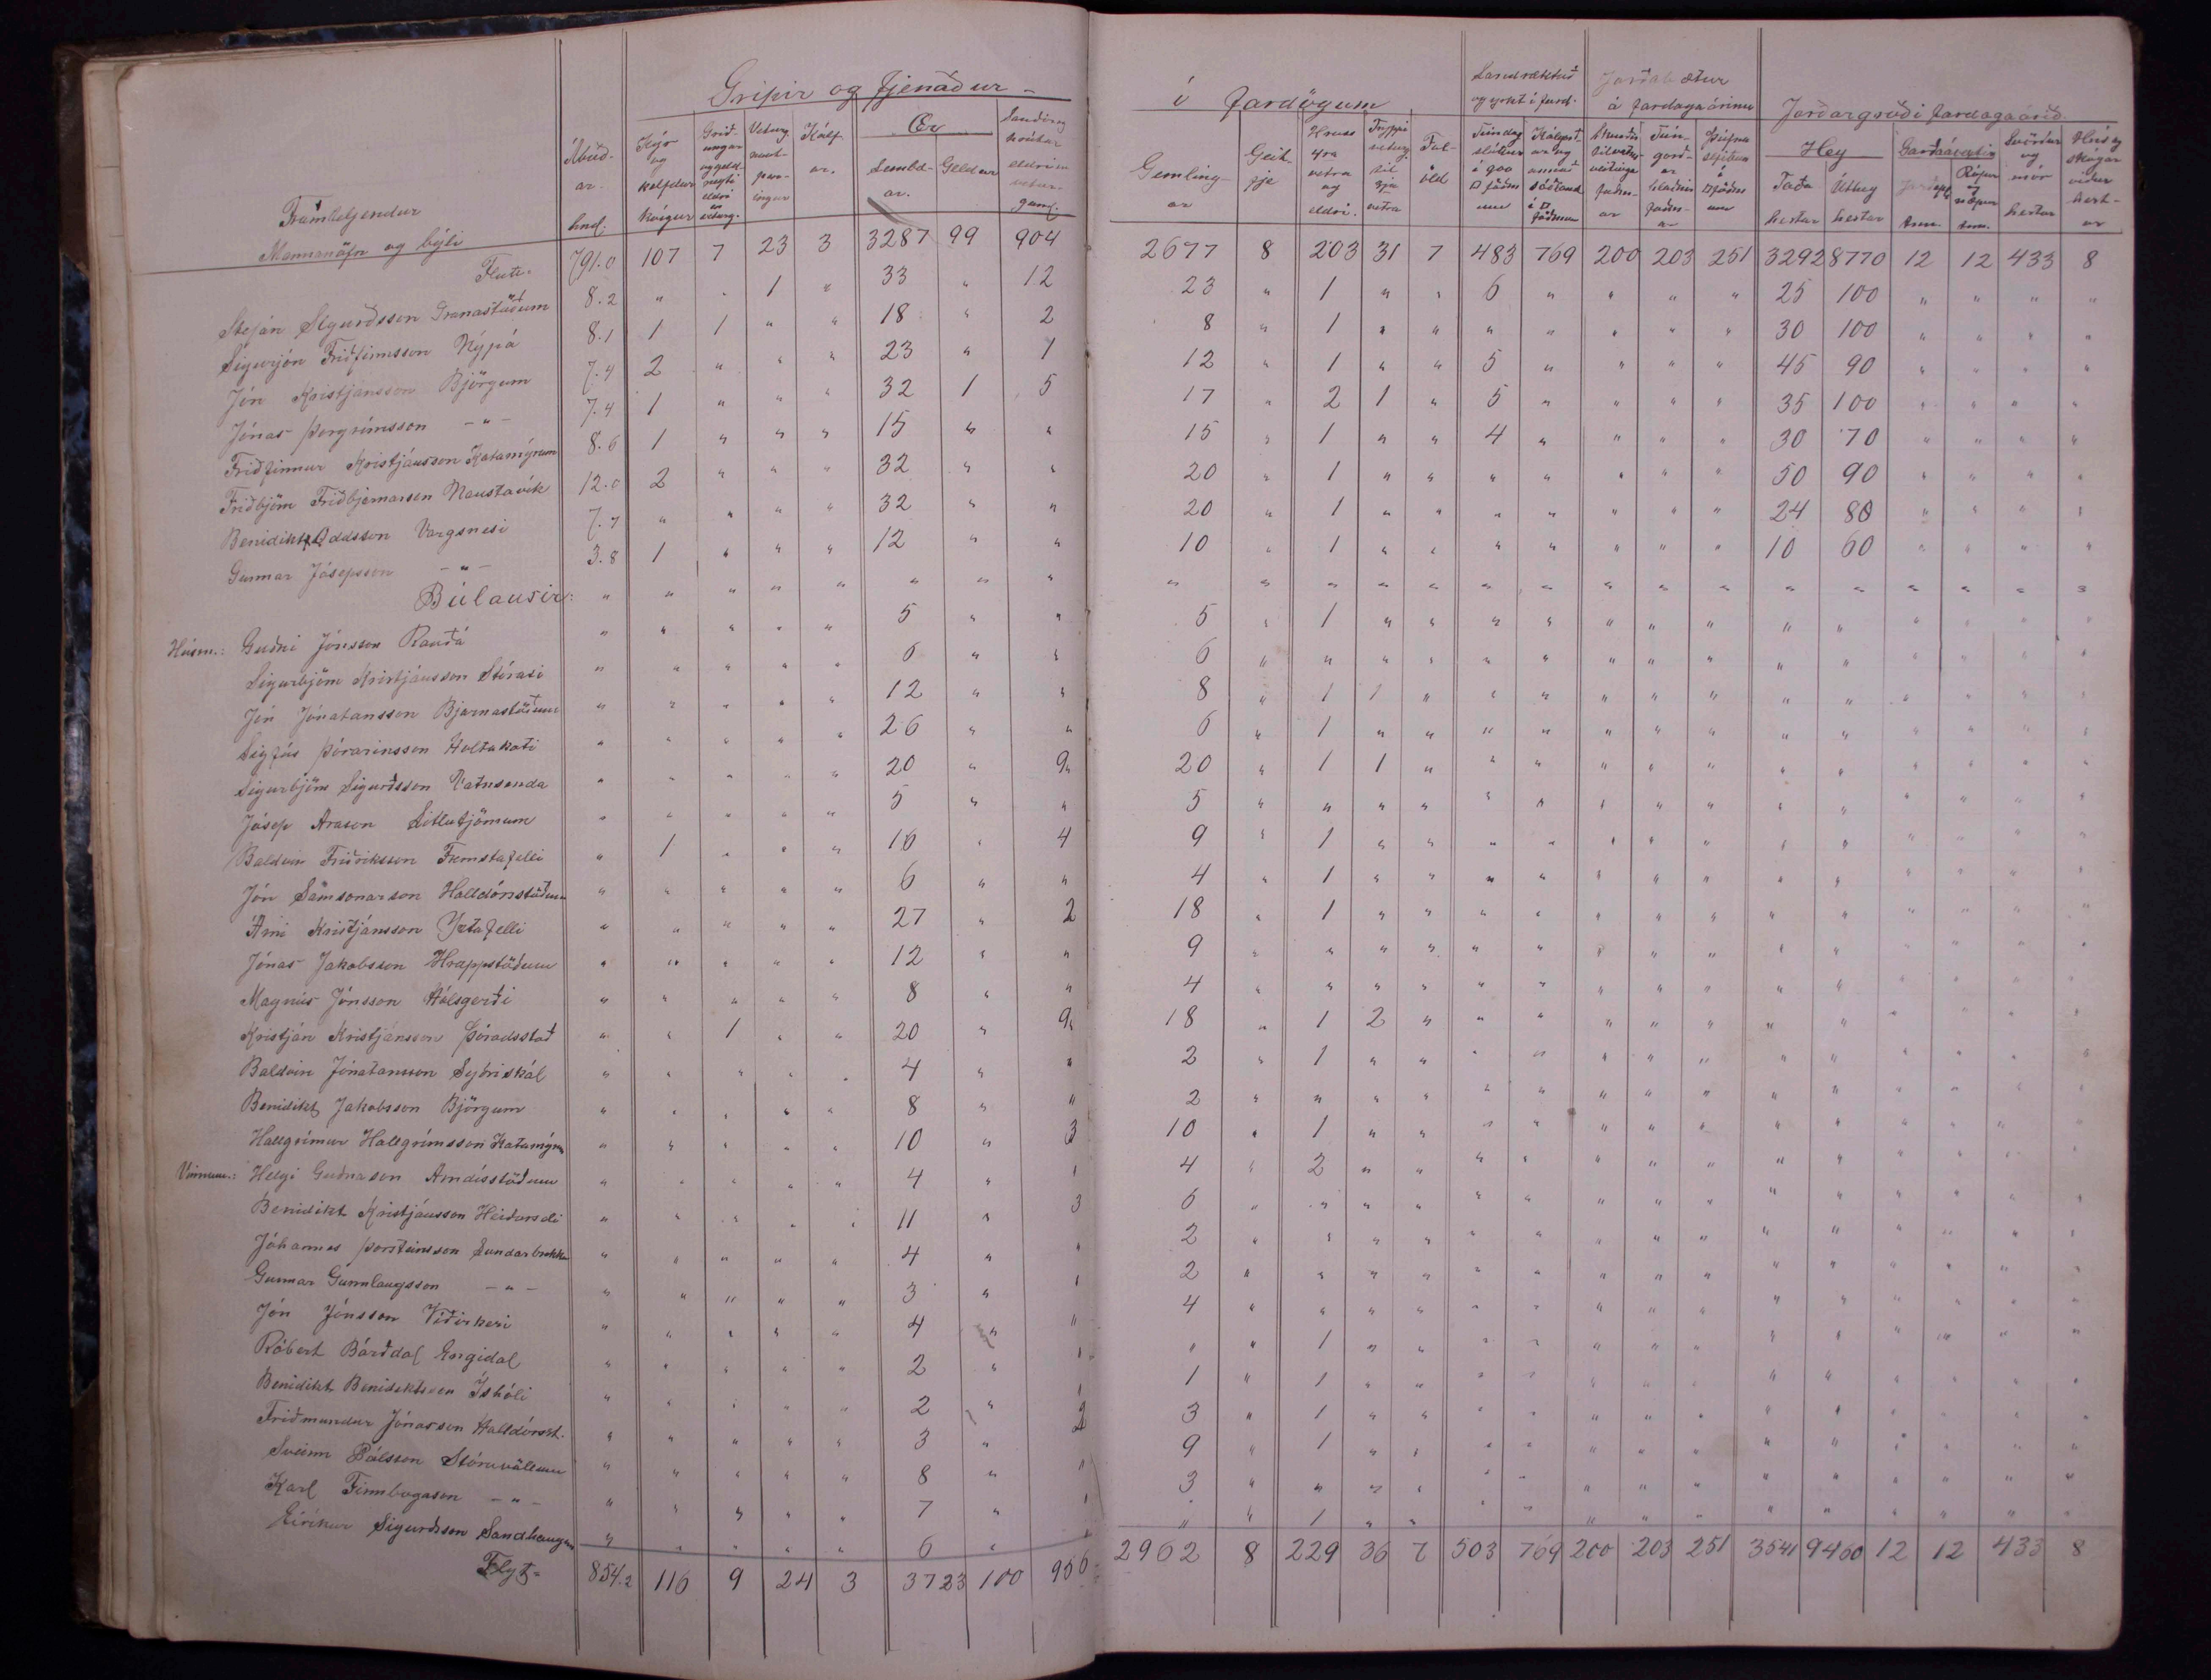 Gripir og fjenaður – í fardögum
Landræktuð og yrkt í fard. Jarðabætur á fardagaárinu Jarðargróði fardagaárið
Framteljendur
Mannanöfn og býli
Ábúð-ar. hnd. Kýr og kelfdar kvígur Grið-ungar og geld-neyti eldri en veturg. Veturg. naut-pen-ingur Kálf-ar. Ær Lembd-ar. Geldar Sauðir og hrútar eldri en vetur-gaml. Gemling-ar Geit-fje Hross 4ra vetra og eldri. Tryppi veturg. til 3ja vetra Fol-öld Hey Taða hestar Úthey hestar Garðávextir Jarðepl. tunn. Rófur og næpur tunn. Svörður og mór hestar
Flutt. 791.0 107 7 23 3 3287 99 904 2677 8 203 31 7 483 769 200 203 251 3292 8770 12 12 433 8
Stefán Sigurðsson Granastöðum 8.2 " " 1 " 33 " 12 23 " 1 " " 6 " " " " 25 100 " " " "
Sigurjón Friðfinnsson Nýpá 8.1 1 1 " " 18 " 2 8 " 1 " " " " " " " 30 100 " " " "
Jón Kristjánsson Björgum 7.4 2 " " " 23 " 1 12 " 1 " " 5 " " " " 45 90 " " " "
Jónas Þorgrímsson – " – 7.4 1 " " " 32 1 5 17 " 2 1 " 5 " " " " 35 100 " " " "
Friðfinnur Kristjánsson Kotamýrum 8.6 1 " " " 15 " " 15 " 1 " " 4 " " " " 30 70 " " " "
Friðbjörn Friðbjarnarson Naustavík 12.0 2 " " " 32 " " 20 " 1 " " " " " " " 50 90 " " " "
Benidikt Oddsson Vargsnesi 7.7 " " " " 32 " " 20 " 1 " " " " " " " 24 80 " " " "
Gunnar Jósepsson – " – 3.8 1 " " " 12 " " 10 " 1 " " " " " " " 10 60 " " " "
Búlausir: " " " " " " " " " " " " " " " " " " " " " " " "
Húsm.: Guðni Jónsson Rauðá " " " " " 5 " " 5 " 1 " " " " " " " " " " " " "
Sigurbjörn Kristjánsson Stórasi " " " " " 6 " " 6 " " " " " " " " " " " " " " "
Jón Jónatansson Bjarnastöðum " " " " " 12 " " 8 " 1 1 " " " " " " " " " " " "
Sigfús Þórarinsson Holtakoti " " " " " 26 " " 6 " 1 " " " " " " " " " " " " "
Sigurbjörn Sigurðsson Vatnsenda " " " " " 20 " 9 20 " 1 1 " " " " " " " " " " " "
Jósep Arason Litlutjörnum " " " " " 5 " " 5 " " " " " " " " " " " " " " "
Baldvin Friðriksson Fremstafelli " 1 " " " 16 " 4 9 " 1 " " " " " " " " " " " " "
Jón Samsonarson Halldórsstöðum " " " " " 6 " " 4 " 1 " " " " " " " " " " " " "
Árni Kristjánsson Yztafelli " " " " " 27 " 2 18 " 1 " " " " " " " " " " " " "
Jónas Jakobsson Hrappstöðum " " " " " 12 " " 9 " " " " " " " " " " " " " " "
Magnús Jónsson Hálsgerði " " " " " 8 " " 4 " " " " " " " " " " " " " " "
Kristján Kristjánsson Þóroddsstað " " 1 " " 20 " 9 18 " 1 2 " " " " " " " " " " " "
Baldvin Jónatansson Syðriskál " " " " " 4 " " 2 " 1 " " " " " " " " " " " " "
Benidikt Jakobsson Björgum " " " " " 8 " " 2 " " " " " " " " " " " " " " "
Hallgrímur Hallgrímsson Kotamýrum " " " " " 10 " 3 10 " 1 " " " " " " " " " " " " "
Vinnum.: Helgi Guðnason Arndísstöðum " " " " " 4 " 1 4 " 2 " " " " " " " " " " " " "
Benidikt Kristjánsson Heiðarseli " " " " " 11 " 3 6 " " " " " " " " " " " " " " "
Jóhannes Þorsteinsson Lundarbrekku " " " " " 4 " " 2 " " " " " " " " " " " " " " "
Gunnar Gunnlaugsson – " – " " " " " 3 " 1 2 " " " " " " " " " " " " " " "
Jón Jónsson Víðirkeri " " " " " 4 " " 4 " " " " " " " " " " " " " " "
Róbert Bárðdal Engidal " " " " " 2 " 1 " " 1 " " " " " " " " " " " " "
Benidikt Benidiktsson Íshóli " " " " " 2 " 1 1 " 1 " " " " " " " " " " " " "
Friðmundur Jónasson Halldórsst. " " " " " 3 " 2 3 " 1 " " " " " " " " " " " " "
Sveinn Pálsson Stóruvöllum " " " " " 8 " " 9 " 1 " " " " " " " " " " " " "
Karl Finnbogason – " – " " " " " 7 " 1 3 " " " " " " " " " " " " " " "
Eiríkur Sigurðsson Sandhaugum " " " " " 6 " " " 1 " " " " " " " " " " " " "
Flyt = 854.2 116 9 24 3 3723 100 956 2962 8 229 36 7 503 769 200 203 251 3541 9460 12 12 433 8